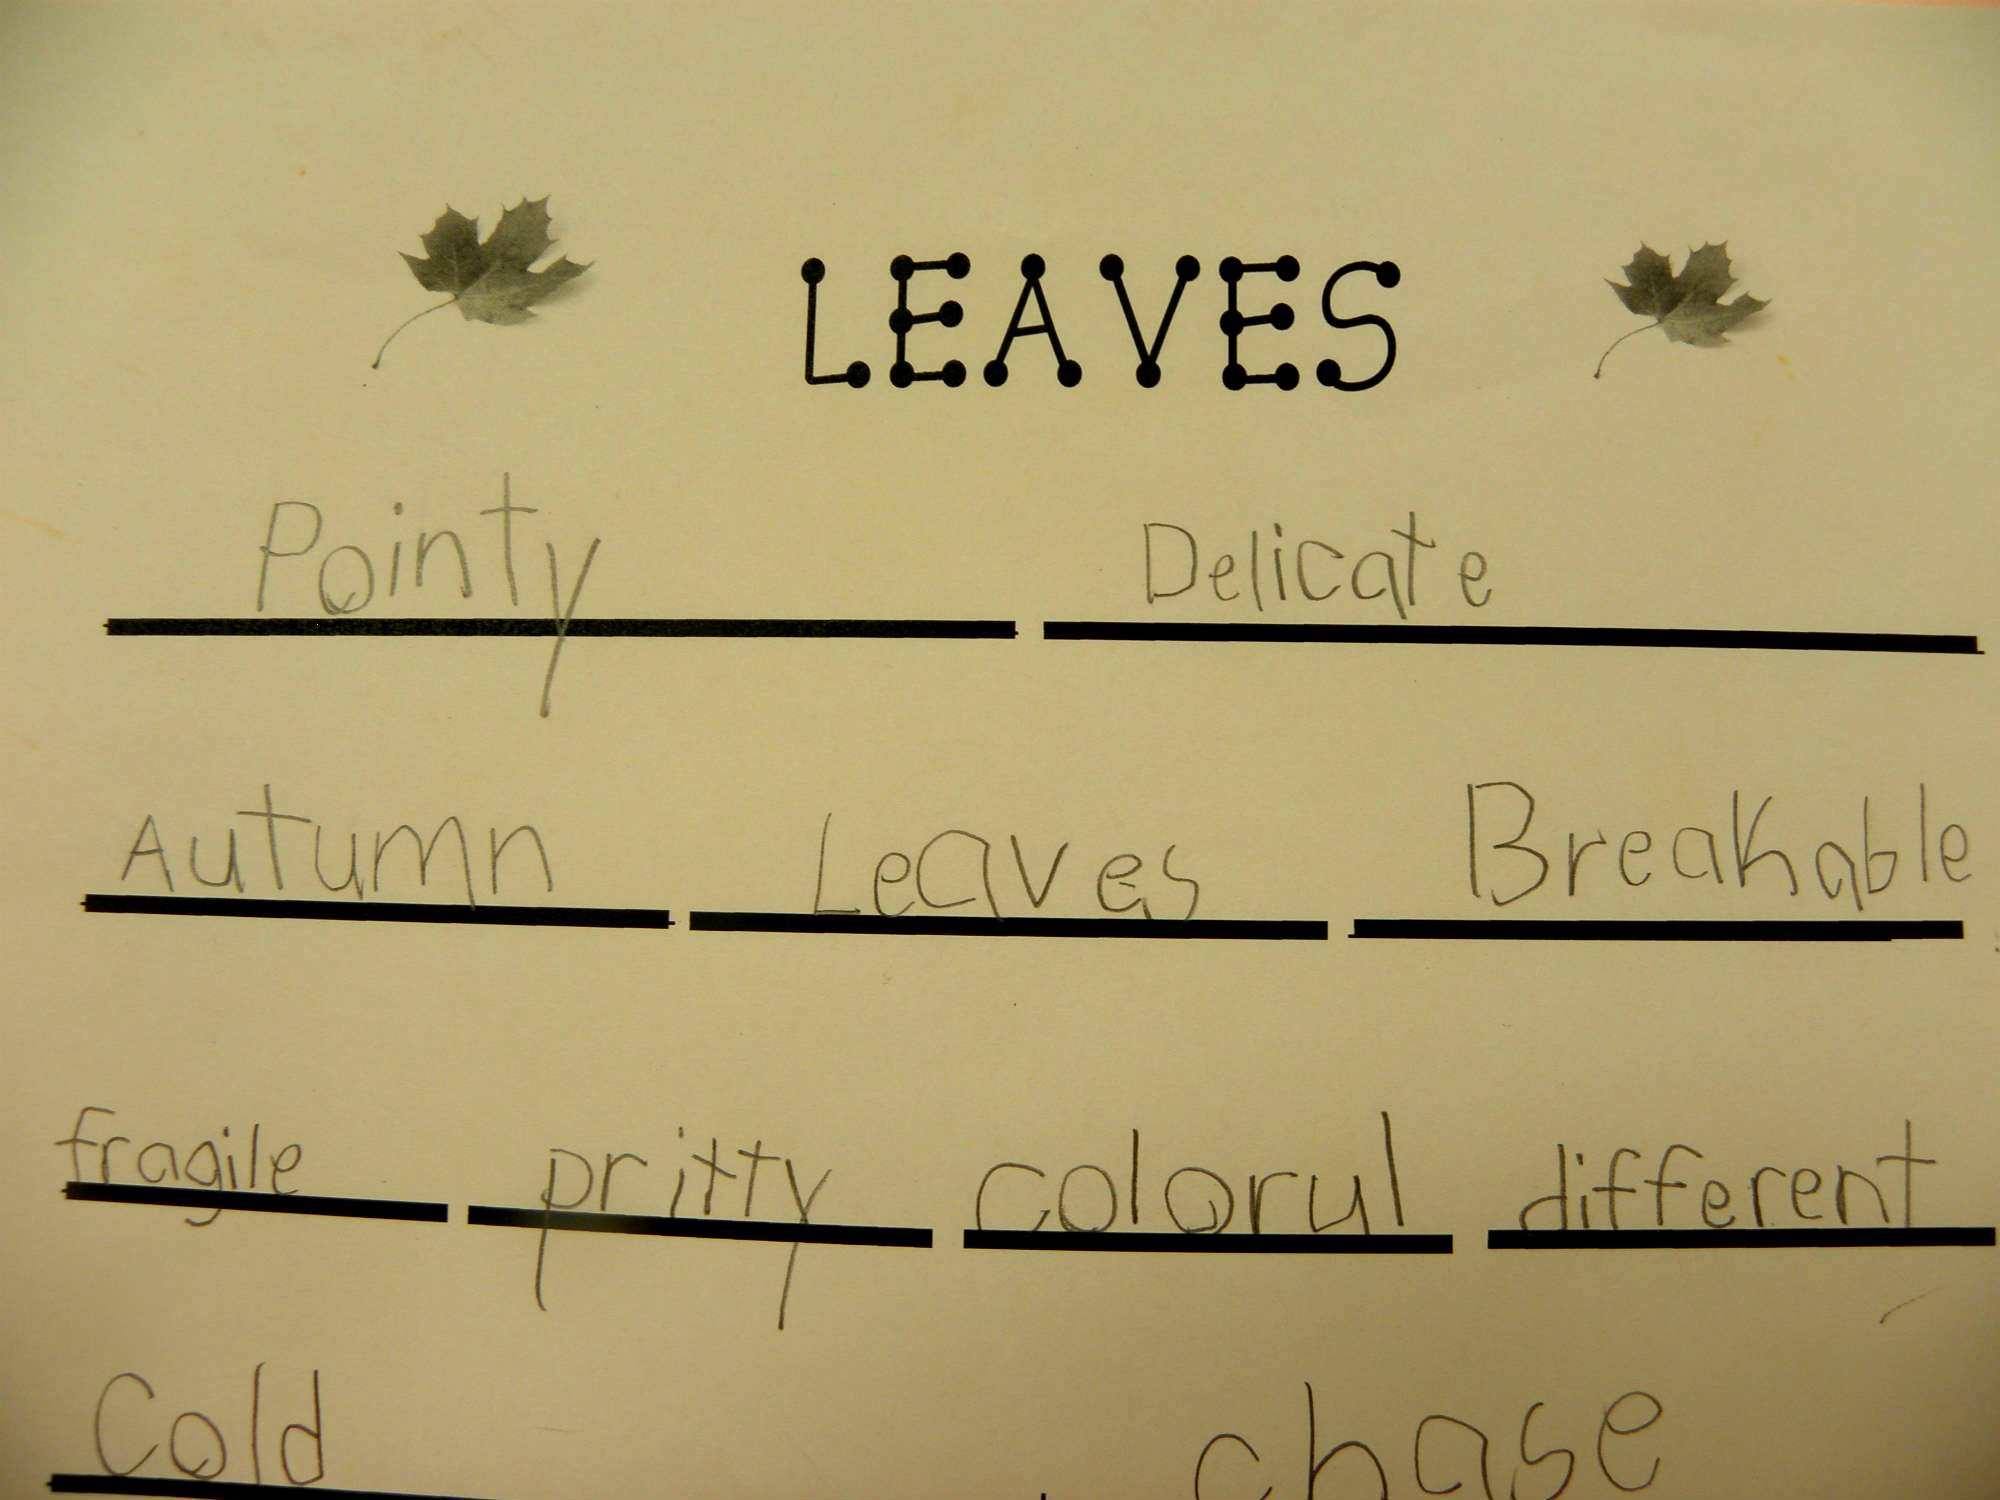 LEAVES
Pointy Delicate
Autumn Leaves Breakable
fragile pritty colorul different
Cold chase